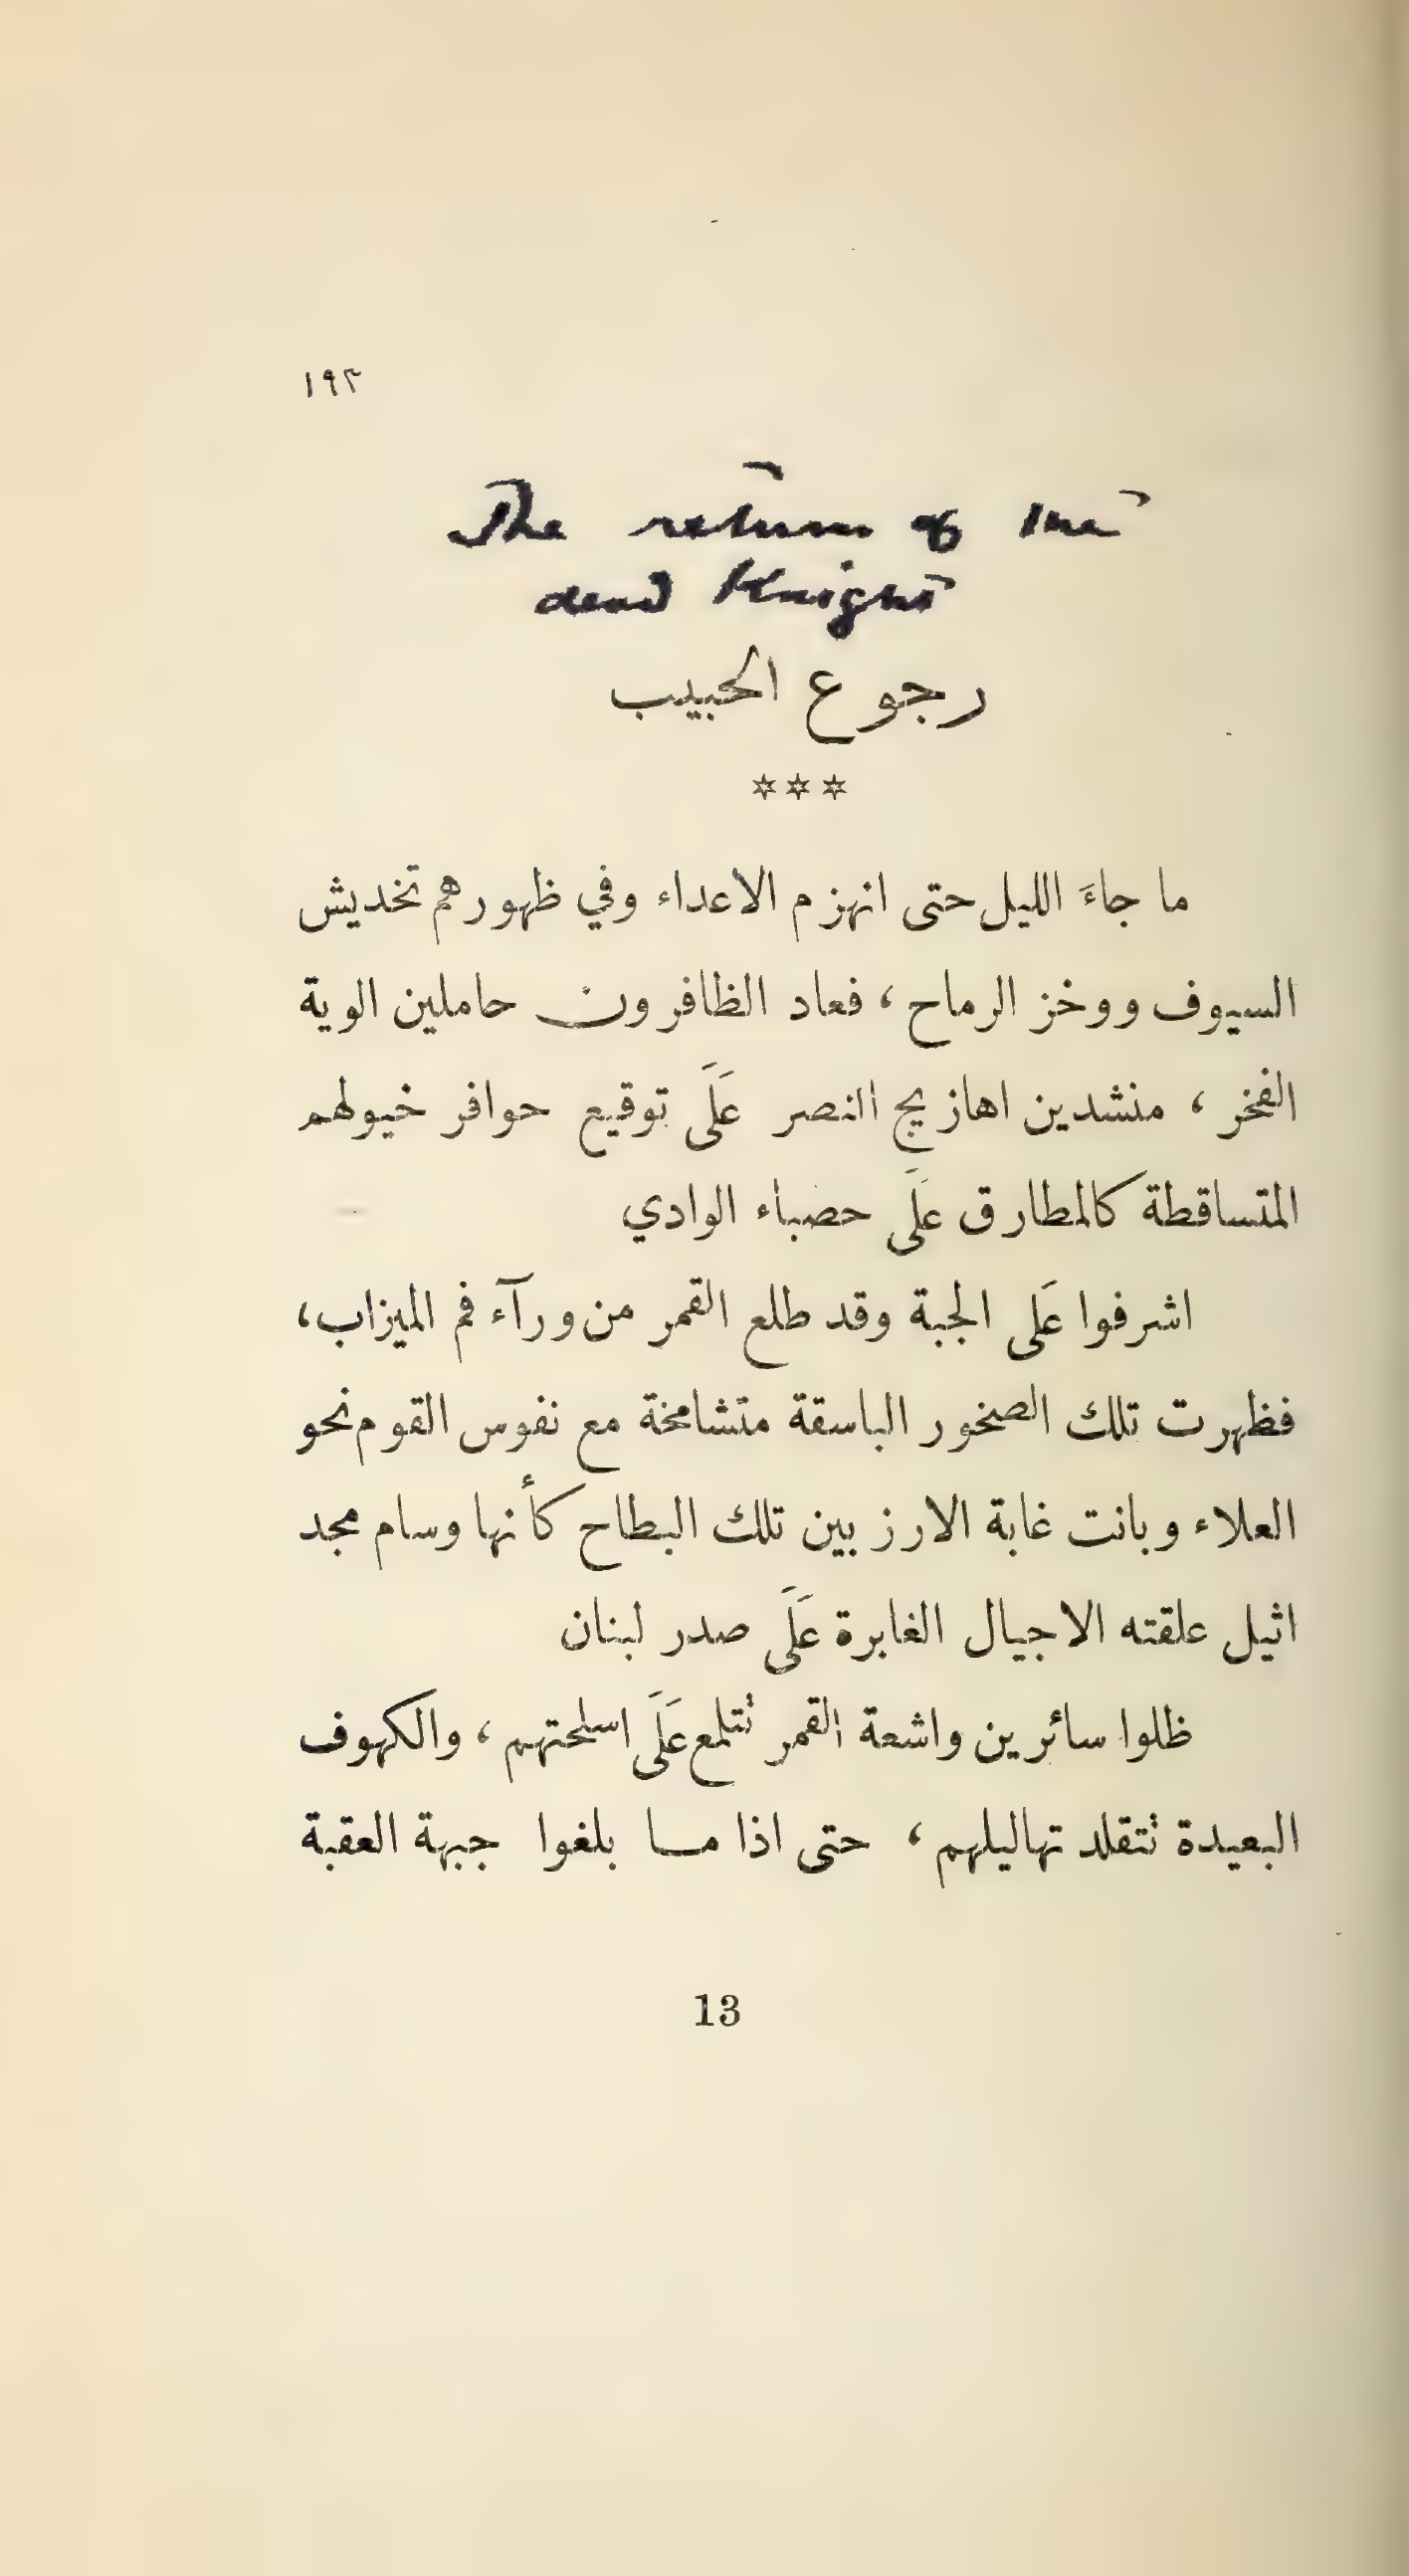 ١٩٣
The return of the
dead Knight
رجوع الحبيب
***
ما جاءَ الليل حتى انهزم الاعداء وفي ظهورهم تخديش
السيوف ووخز الرماح ، فعاد الظافرون حاملين الوية
الفخر ، منشدين اهازيج النصر عَلَى توقيع حوافر خيولهم
المتساقطة كالمطارق عَلَى حصباء الوادي
اشرفوا عَلى الجبة وقد طلع القمر من ورآء فم الميزاب،
فظهرت تلك الصخور الباسقة متشامخة مع نفوس القوم نحو
العلاء وبانت غابة الارز بين تلك البطاح كأنها وسام مجد
اثيل علقته الاجيال الغابرة عَلَى صدر لبنان
ظلوا سائرين واشعة القمر تتلمع عَلَى اسلحتهم ، والكهوف
البعيدة تتقلد تهاليلهم ، حتى اذا مــا بلغوا جبهة العقبة
13